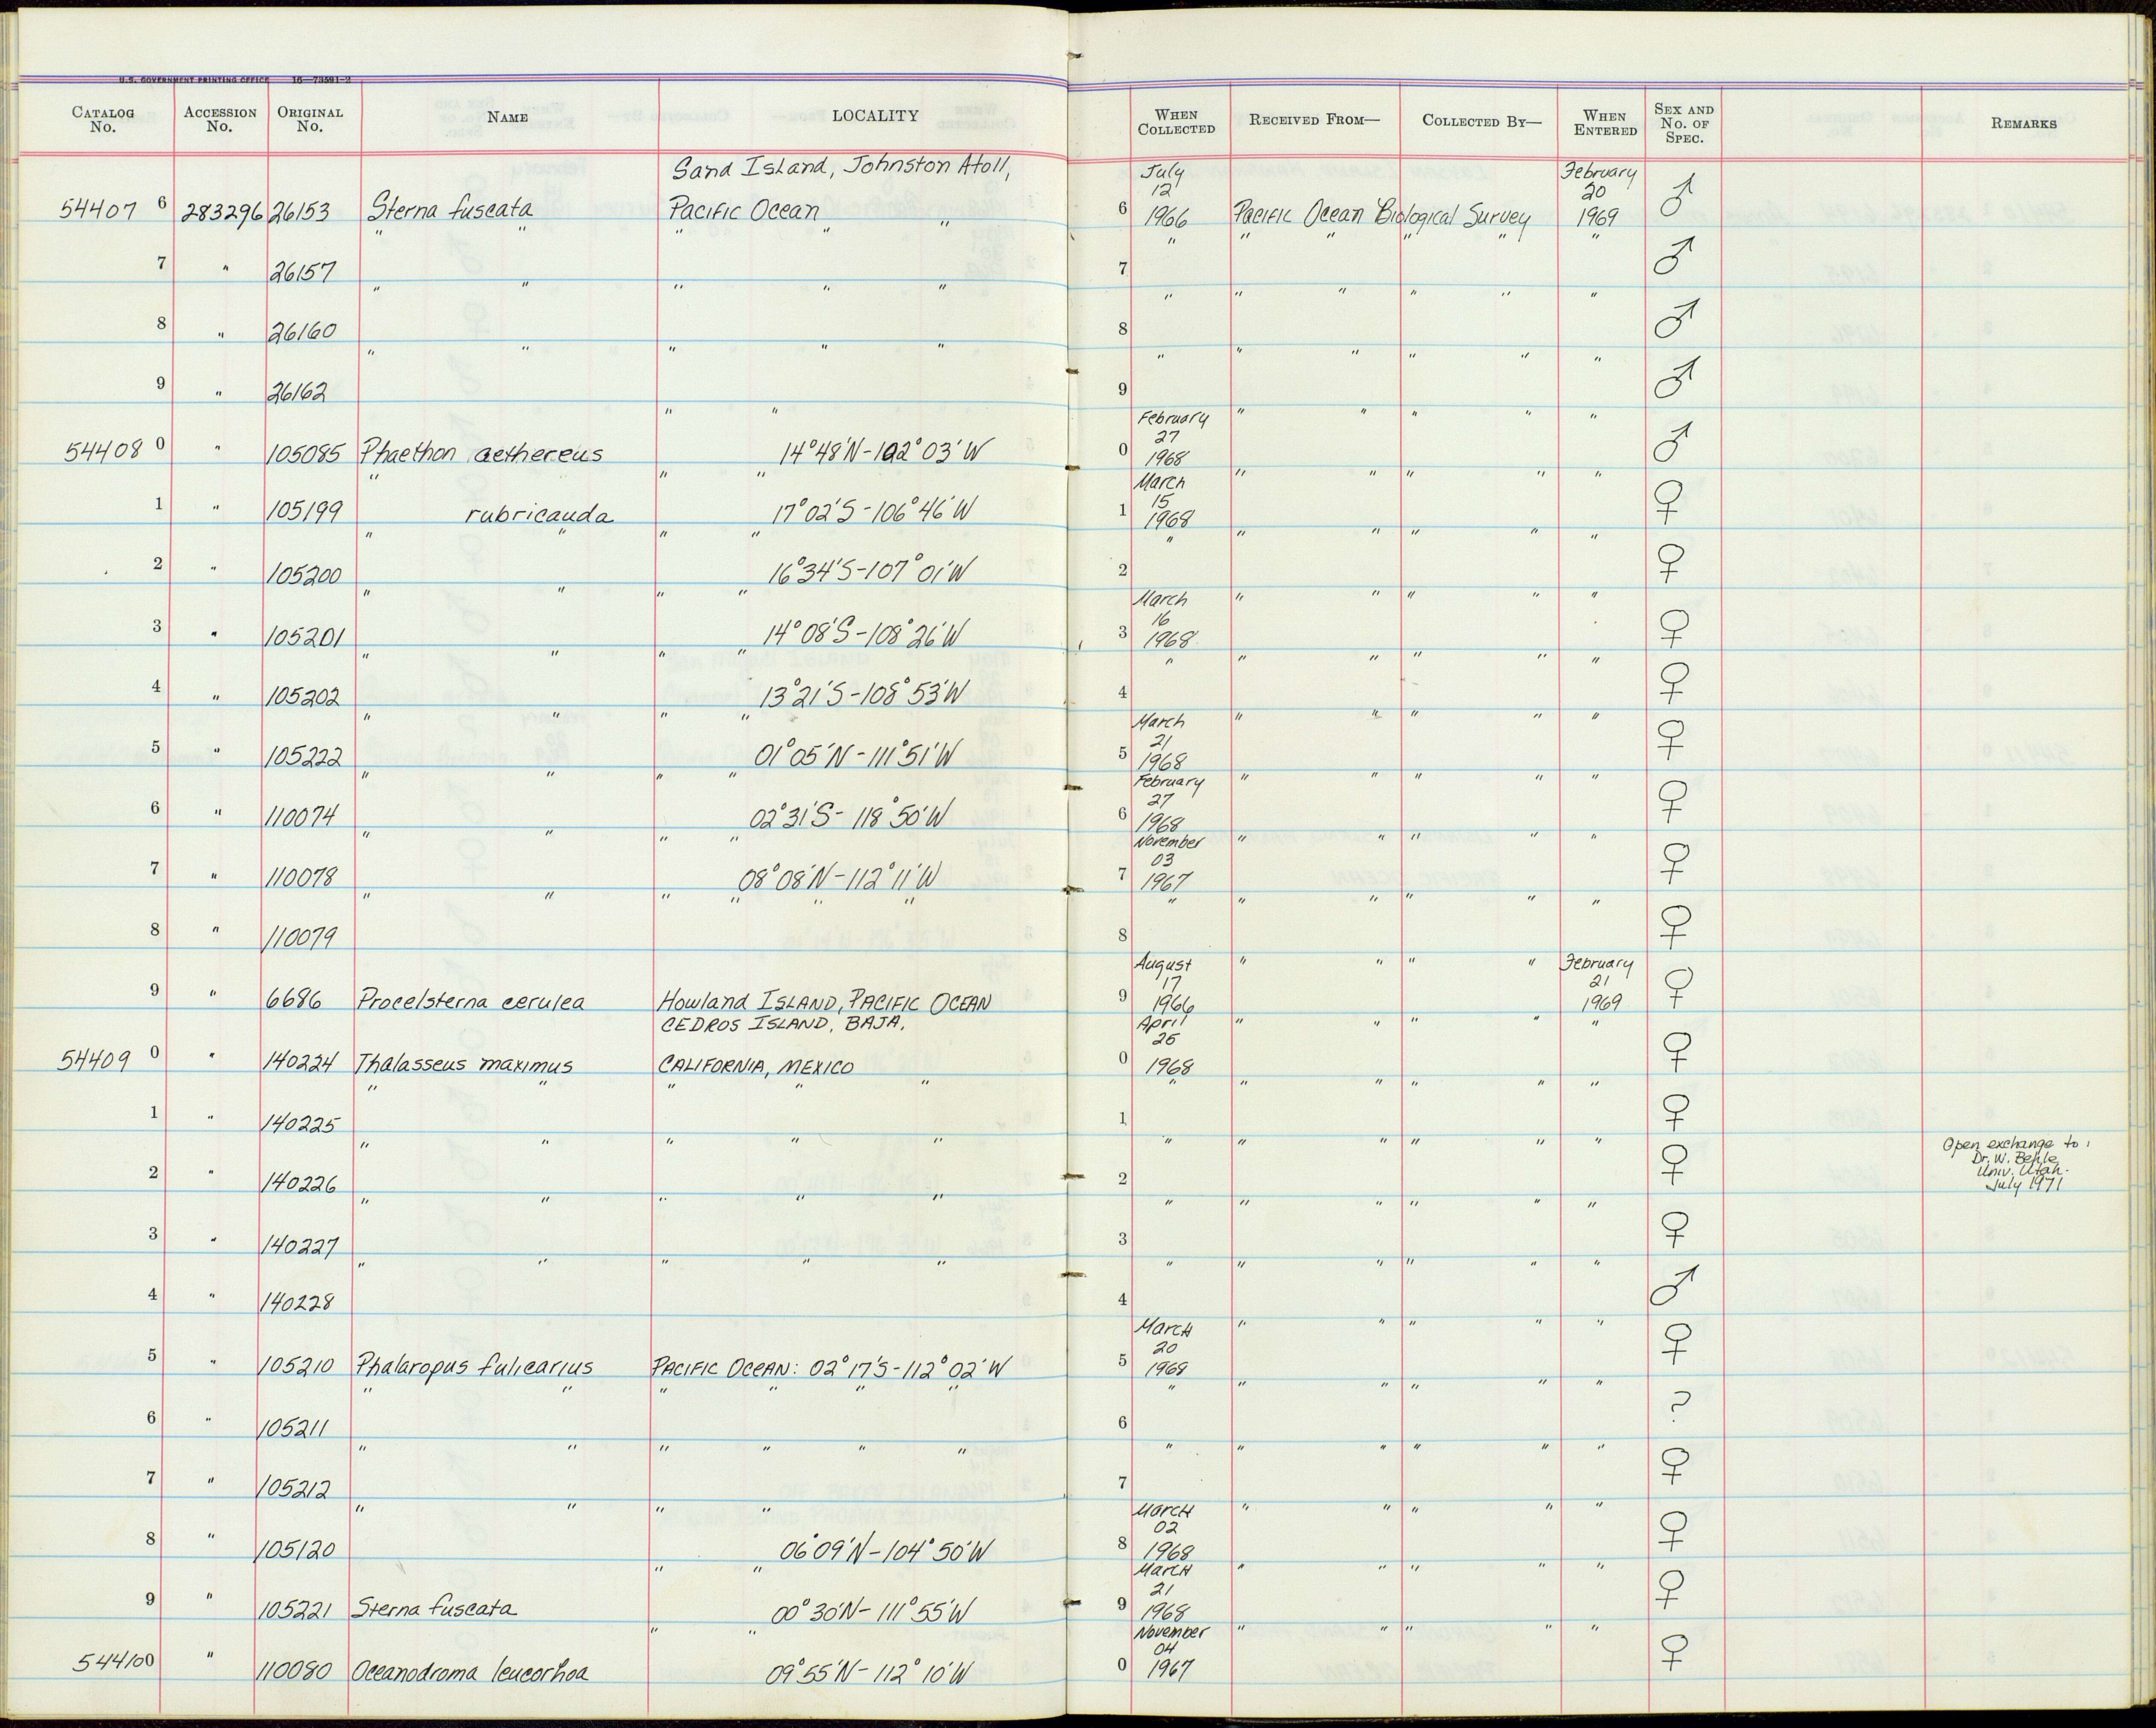 U.S. GOVERNMENT PRINTING OFFICE 16—73591-2
CATALOG No. ACCESSION No. ORIGINAL No. NAME LOCALITY WHEN COLLECTED RECEIVED FROM— COLLECTED BY— WHEN ENTERED SEX AND No. OF SPEC. REMARKS
Sand Island, Johnston Atoll, July 12 February 20
54407 6 283296 26153 Sterna fuscata Pacific Ocean 6 1966 Pacific Ocean Biological Survey 1969 ♂
7 " 26157 " " " " " 7 " " " " " " ♂
8 " 26160 " " " " " 8 " " " " " " ♂
9 " 26162 " " " " " 9 " " " " " " ♂
54408 0 " 105085 Phaethon aethereus " " 14°48'N-102°03'W 0 February 27 1968 " " " " " ♂
1 " 105199 " rubricauda " " 17°02'S-106°46'W 1 March 15 1968 " " " " " ♀
2 " 105200 " " " " 16°34'S-107°01'W 2 " " " " " " ♀
3 " 105201 " " " " 14°08'S-108°26'W 3 March 16 1968 " " " " " ♀
4 " 105202 " " " " 13°21'S-108°53'W 4 " " " " " " ♀
5 " 105222 " " " " 01°05'N-111°51'W 5 March 21 1968 " " " " " ♀
6 " 110074 " " " " 02°31'S-118°50'W 6 February 27 1968 " " " " " ♀
7 " 110078 " " " " 08°08'N-112°11'W 7 November 03 1967 " " " " " ♀
8 " 110079 " " " " " " " 8 " " " " " " ♀
9 " 6686 Procelsterna cerulea Howland ISLAND, PACIFIC OCEAN 9 August 17 1966 " " " " February 21 1969 ♀
CEDROS ISLAND, BAJA,
54409 0 " 140224 Thalasseus maximus CALIFORNIA, MEXICO 0 April 25 1968 " " " " " ♀
1 " 140225 " " " " " 1 " " " " " " ♀
2 " 140226 " " " " " 2 " " " " " " ♀ Open exchange to:
Dr. W. Behle
Univ. Utah.
July 1971
3 " 140227 " " " " " 3 " " " " " " ♀
4 " 140228 " " " " " 4 " " " " " " ♂
5 " 105210 Phalaropus fulicarius PACIFIC OCEAN: 02°17'S-112°02'W 5 March 20 1968 " " " " " ♀
6 " 105211 " " " " " " 6 " " " " " " ?
7 " 105212 " " " " " " 7 " " " " " " ♀
8 " 105120 " " " " 06°09'N-104°50'W 8 March 02 1968 " " " " " ♀
9 " 105221 Sterna fuscata " " 00°30'N-111°55'W 9 March 21 1968 " " " " " ♀
544100 " 110080 Oceanodroma leucorhoa " " 09°55'N-112°10'W 0 November 04 1967 " " " " " ♀